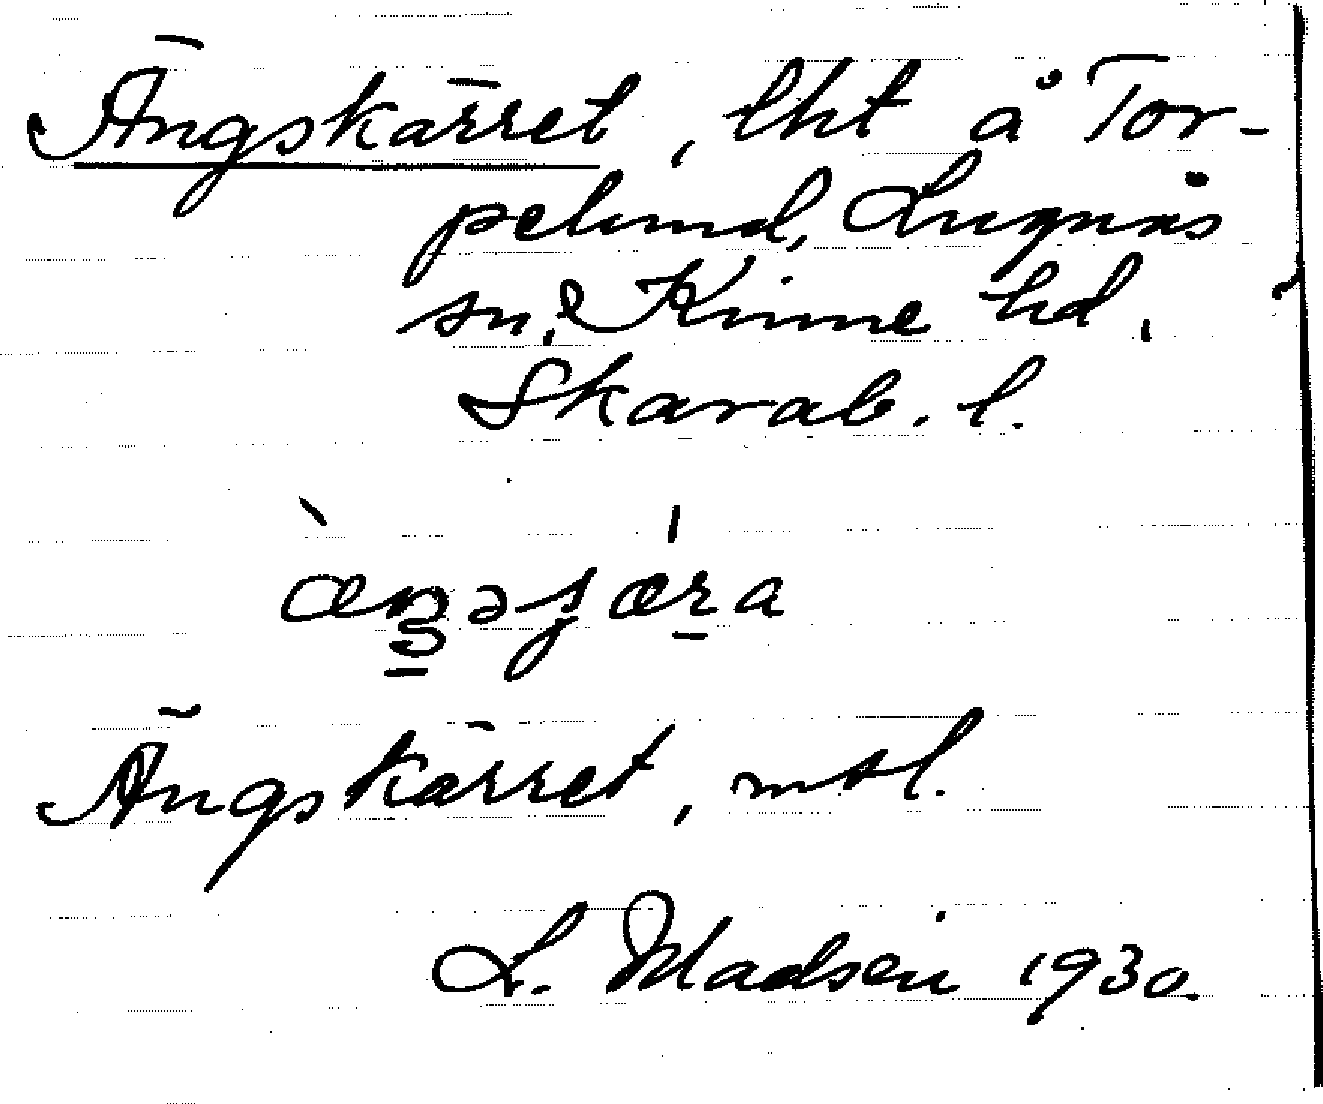 Ängskärret, lht å Tor-
pelund, Lugnås
sn. Kinne hd.
Skarab. l.
Ängskärret, mtl.
L. Madsen 1930.